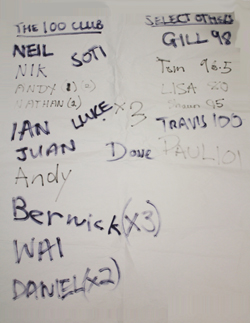 THE 100 CLUB
NEIL
SOTI
NIK
ANDY
NATHAN (2)
IAN
LUKE x 3
JUAN
Andy
Berwick (x3)
WAI
DANIEL (x2)
SELECT OTHERS
GILL 98
Tom 96.5
LISA
95
TRAVIS 100
Dave PAUL 101